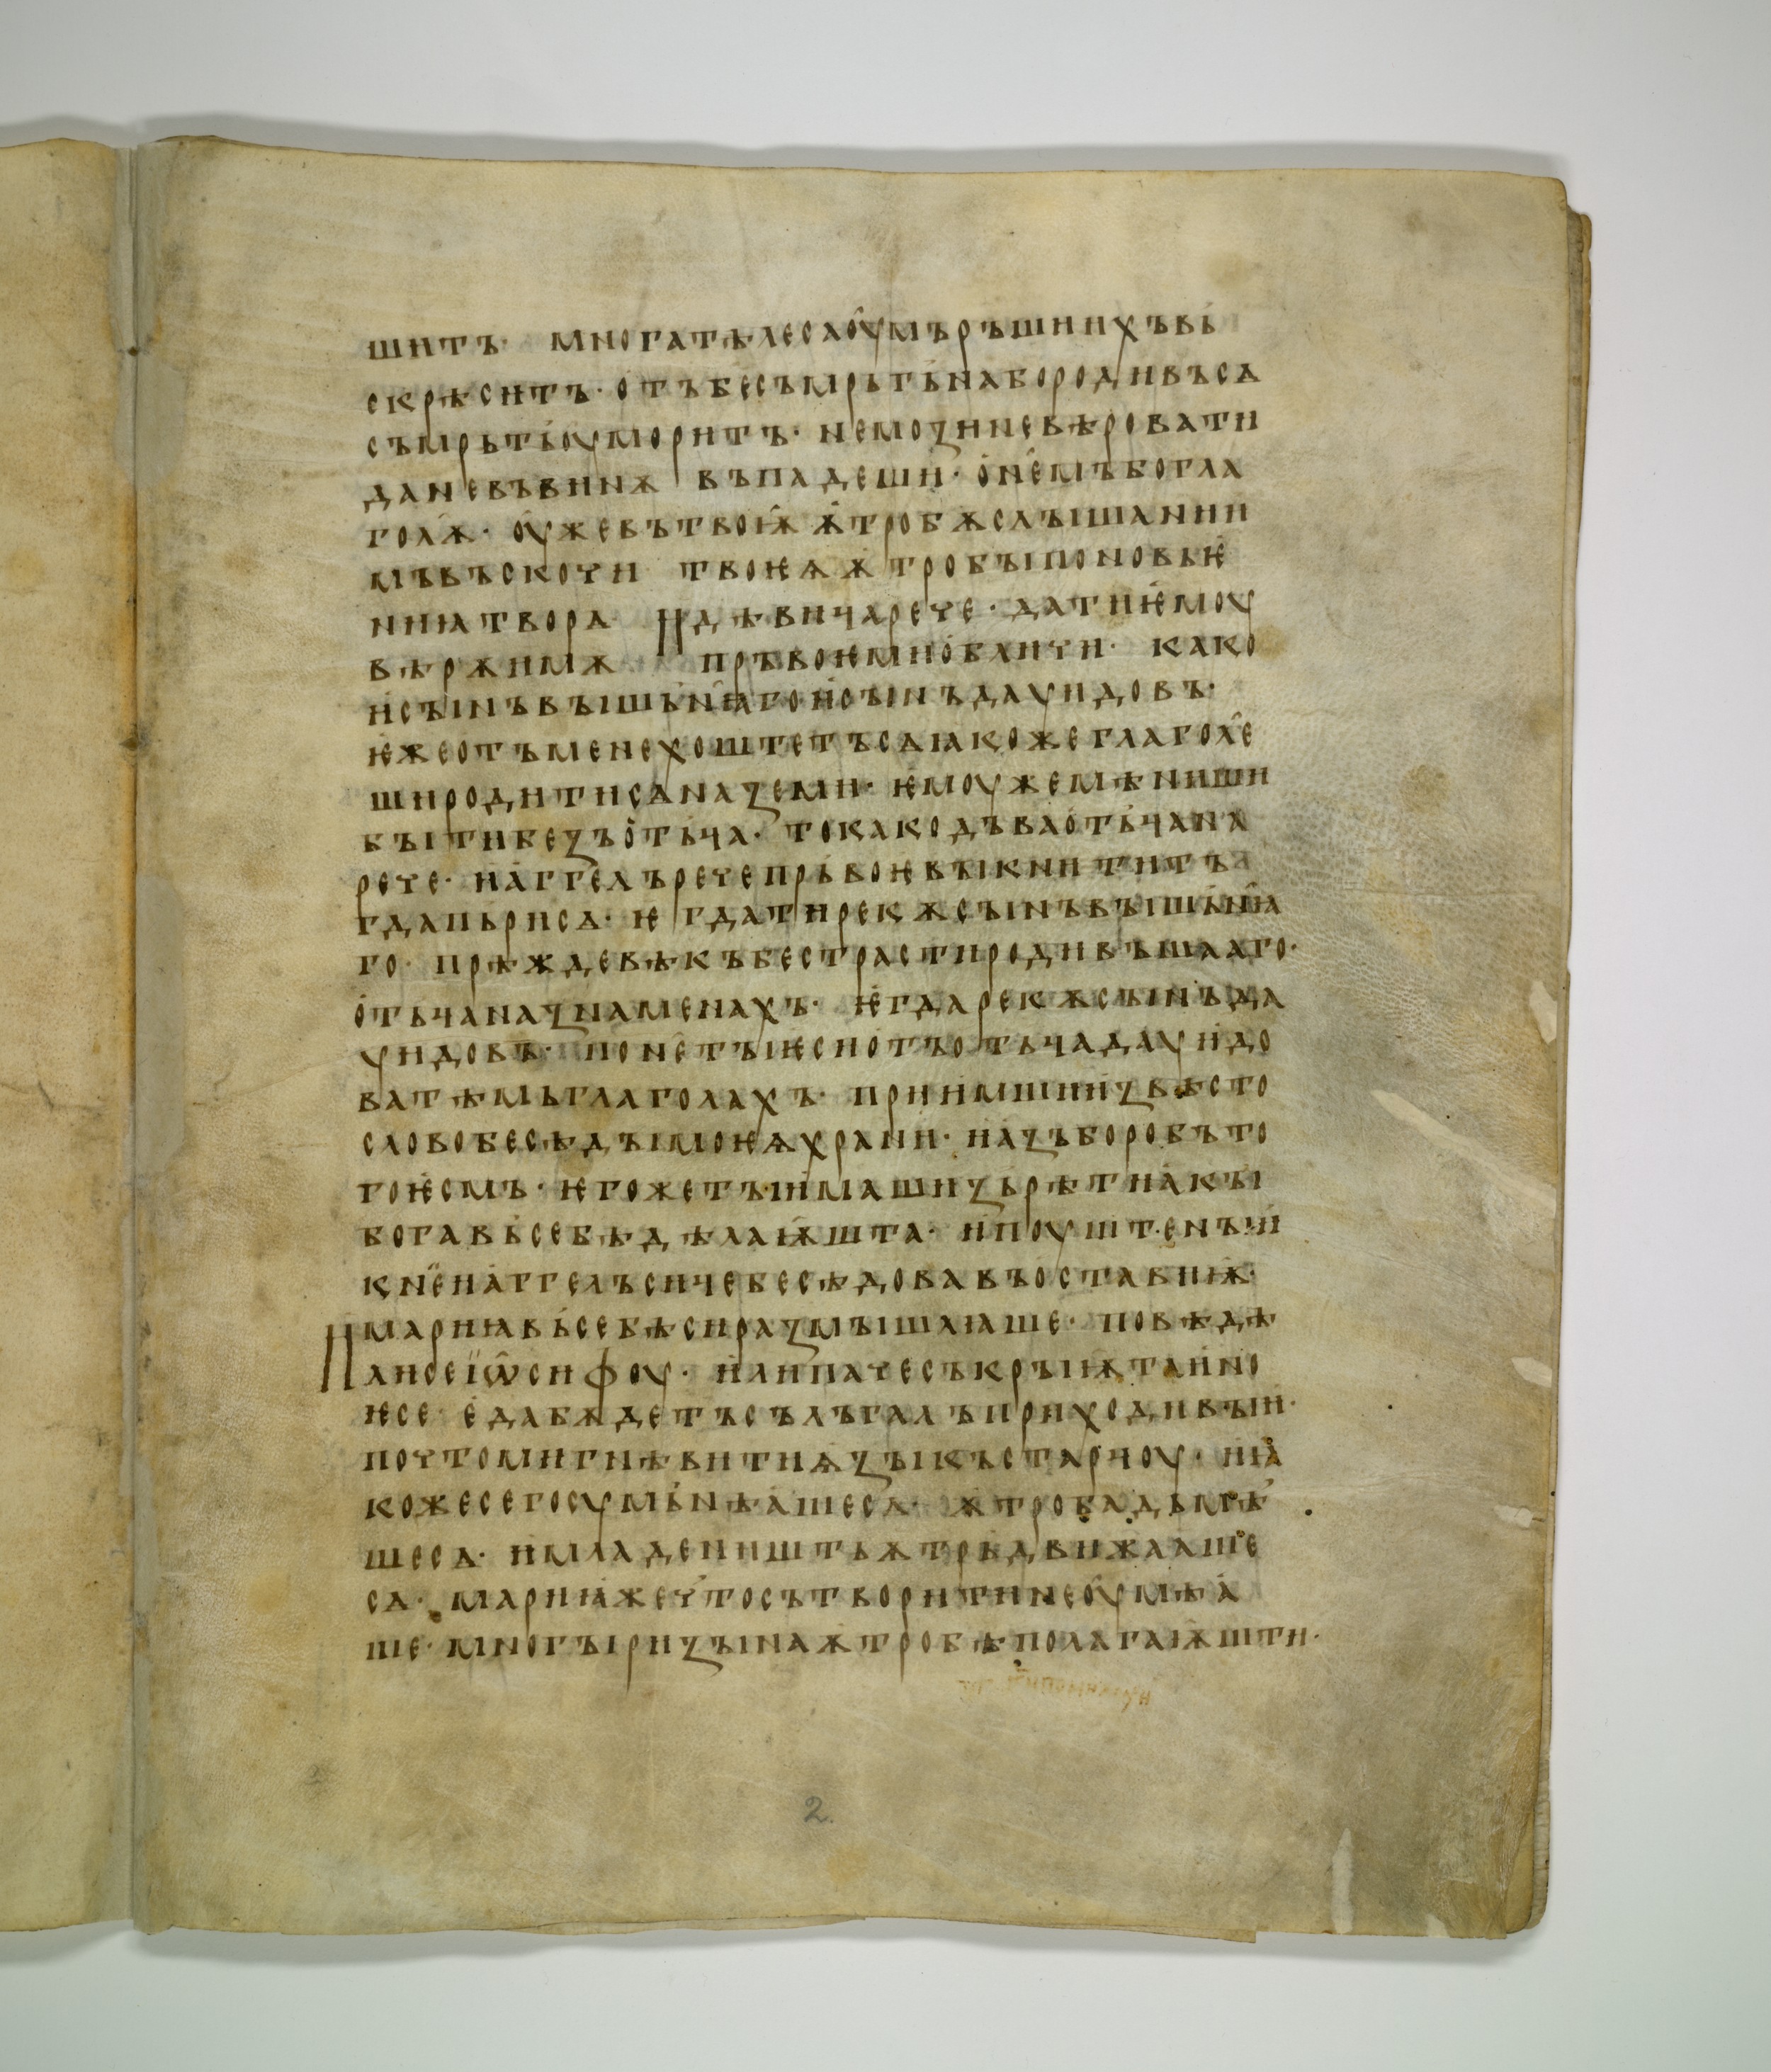 шитъ· многатѣлесаоумъръшиихъвь
скрѣситъ· отъбесъмрьтьнабородивъсѧ
съмрьтьѹморитъ· немоꙁииевѣровати
даневъвинѫ въпадеши· онемъбогла
голѭ· оужевътвоѭ ѫтробѫслъішании
мъвъскочи твоеѩ ѫтробъіпоновьѥ
ниꙗтворѧ И дѣвицарече· датиѥмоу
вѣрѫимѫ прьвоѥмиобличи· како
исъінъвъішьнꙗгоисъінъдаѵидовъ·
ѥжеотъменехоштетъсѧꙗкожеглаголе
широдитисѧнаꙁеми· ѥмоужемѣниши
бъітибеꙁъотьца· токакодъваотьцана
рече· иаггелъречепрьвоѥвъікнититъ
гдапьрисѧ· ѥгдатирекѫсъінъвъішьнꙗ
го· прѣждевѣкъбестрастиродивъшааго·
отьцанаꙁнаменахъ· ѥгдарекѫсъінъда
ѵидовъ· понетъіѥсиотъотьцадаѵидо
ватѣмьглаголахъ· приимшииꙁвѣсто
словобесѣдъімоѥѩхрани· наꙁъборобъто
гоѥсмъ· ѥгожетъіимашиꙁьрѣтиакъі
богавьсебѣдѣлаѭшта· ипоуштенъіи
кнеиаггелъсицебесѣдовавъоставиѭ·
И мариꙗвьсебѣсираꙁмъішлꙗше· повѣдѣ
лисеіѡсифоу· илипачесъкръіѭтаино
ѥсе· едабѫдетъсълъгалъприходивъіи·
почтомигнѣвитиѩꙁъікъстарцоу· иꙗ
кожесегосумьнѣашесѧ· ѫтробадьмѣ
шесѧ· имладеништьѫтрьдвижаѧше
сѧ· мариꙗжечтосътворитинеоумѣа
ше· многъіриꙁъінаѫтробѣполагаѭшти·
2.